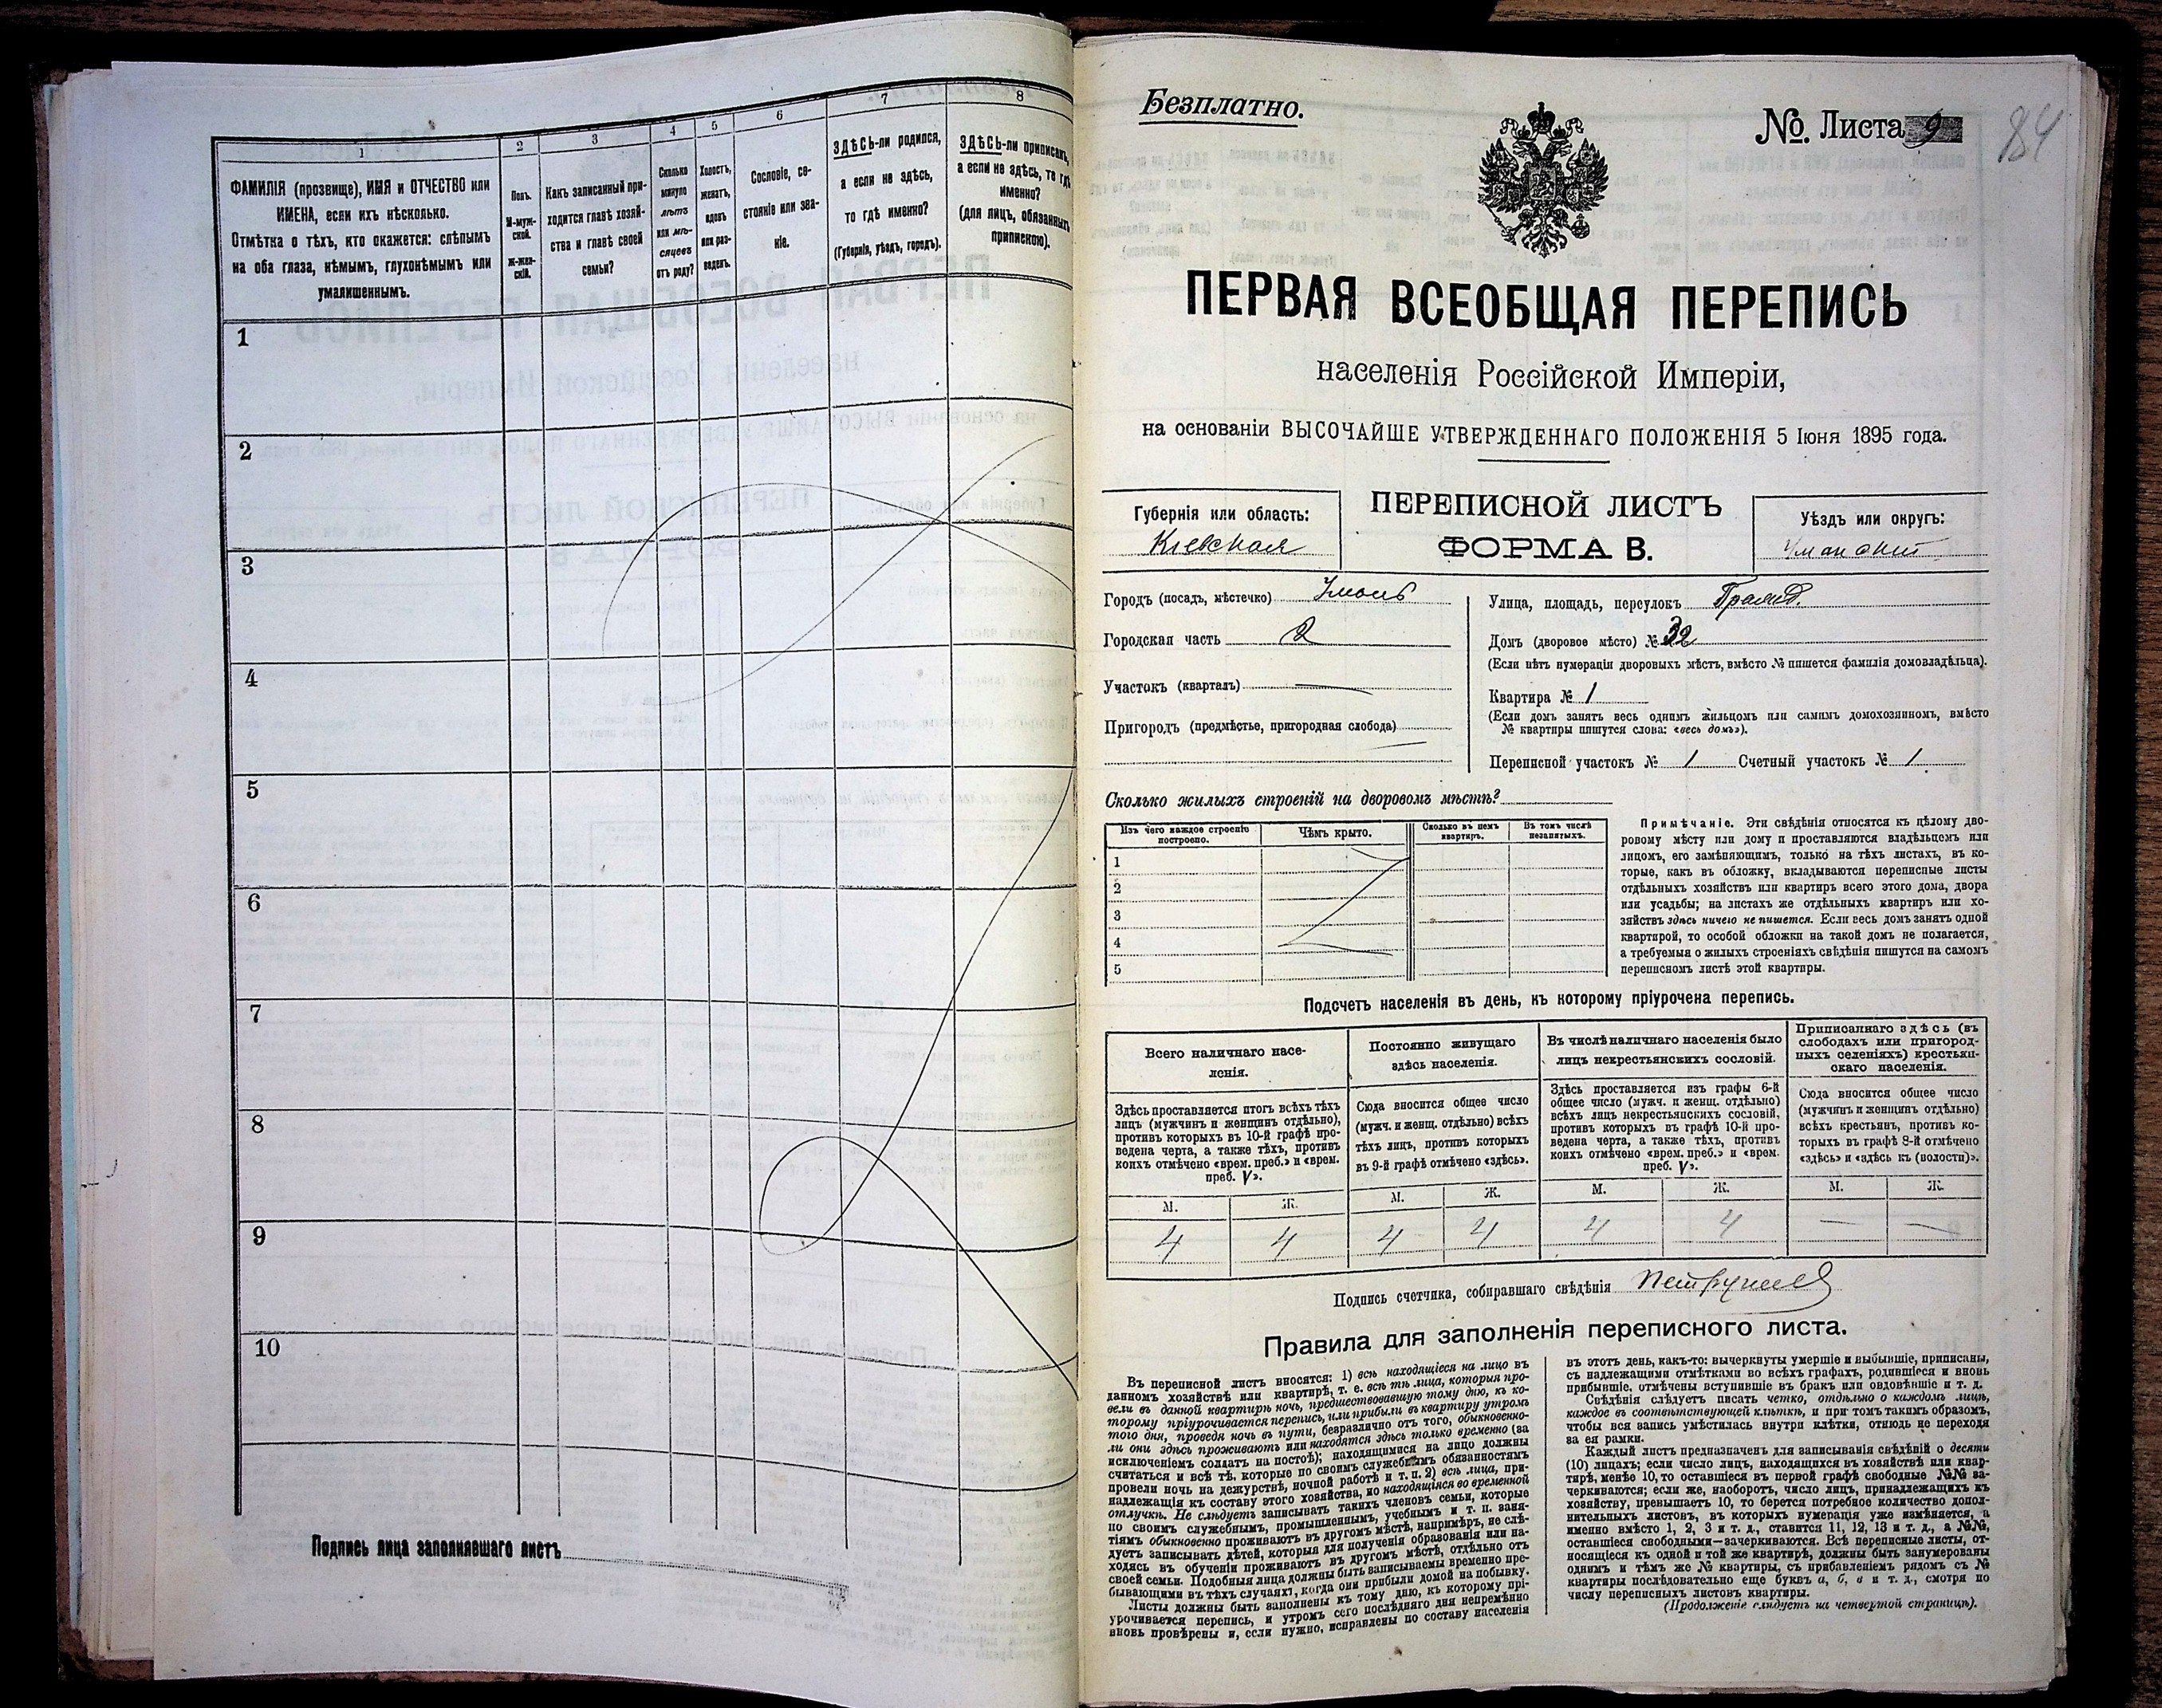 1
ФАМИЛІЯ (прозвище), ИМЯ и ОТЧЕСТВО или
ИМЕНА, если ихъ нѣсколько.
Отмѣтка о тѣхъ, кто окажется: слѣпымъ
на оба глаза, нѣмымъ, глухонѣмымъ или
умалишеннымъ.
2
Полъ.
М-муж-
ской.
Ж-жен-
скій.
3
Какъ записанный при-
ходится главѣ хозяй-
ства и главѣ своей
семьи?
4
Сколько
минуло
лѣтъ
или мѣ-
сяцевъ
отъ роду?
5
Холостъ,
женатъ,
вдовъ
или раз-
веденъ.
6
Сословіе, со-
стояніе или зва-
ніе.
7
ЗДѢСЬ-ли родился,
а если не здѣсь,
то гдѣ именно?
(Губернія, уѣздъ, городъ).
8
ЗДѢСЬ-ли приписанъ,
а если не здѣсь, то гдѣ
именно?
(для лицъ, обязанныхъ
припискою).
1
2
3
4
5
6
7
8
9
10
Подпись лица заполнявшаго листъ
Безплатно.
№ Листа 9
184
ПЕРВАЯ ВСЕОБЩАЯ ПЕРЕПИСЬ
населенія Россійской Имперіи,
на основаніи ВЫСОЧАЙШЕ УТВЕРЖДЕННАГО ПОЛОЖЕНІЯ 5 Іюня 1895 года.
Губернія или область:
Кіевская
ПЕРЕПИСНОЙ ЛИСТЪ
ФОРМА В.
Уѣздъ или округъ:
Уманскій
Городъ (посадъ, мѣстечко) Умань
Городская часть 2
Участокъ (кварталъ)
Пригородъ (предмѣстье, пригородная слобода)
Улица, площадь, переулокъ
Домъ (дворовое мѣсто) № 32
(Если нѣтъ нумераціи дворовыхъ мѣстъ, вмѣсто № пишется фамилія домовладѣльца).
Квартира № 1
(Если домъ занятъ весь однимъ жильцомъ или самимъ домохозяиномъ, вмѣсто
№ квартиры пишутся слова: «весь домъ»).
Переписной участокъ № 1 Счетный участокъ № 1
Сколько жилыхъ строеній на дворовомъ мѣстѣ?
Изъ чего каждое строеніе
построено.
Чѣмъ крыто.
Сколько въ немъ
квартиръ.
Въ томъ числѣ
незанятыхъ.
1
2
3
4
5
Примѣчаніе. Эти свѣдѣнія относятся къ цѣлому дво-
ровому мѣсту или дому и проставляются владѣльцемъ или
лицомъ, его замѣняющимъ, только на тѣхъ листахъ, въ ко-
торые, какъ въ обложку, вкладываются переписные листы
отдѣльныхъ хозяйствъ или квартиръ всего этого дома, двора
или усадьбы; на листахъ же отдѣльныхъ квартиръ или хо-
зяйствъ здѣсь ничего не пишется. Если весь домъ занятъ одной
квартирой, то особой обложки на такой домъ не полагается,
а требуемыя о жилыхъ строеніяхъ свѣдѣнія пишутся на самомъ
переписномъ листѣ этой квартиры.
Подсчетъ населенія въ день, къ которому пріурочена перепись.
Всего наличнаго насе-
ленія.
Здѣсь проставляется итогъ всѣхъ тѣхъ
лицъ (мужчинъ и женщинъ отдѣльно),
противъ которыхъ въ 10-й графѣ про-
ведена черта, а также тѣхъ, противъ
коихъ отмѣчено «врем. преб.» и «врем.
преб. V».
М.
Ж.
4
4
Постоянно живущаго
здѣсь населенія.
Сюда вносится общее число
(мужч. и женщ. отдѣльно) всѣхъ
тѣхъ лицъ, противъ которыхъ
въ 9-й графѣ отмѣчено «здѣсь».
М.
Ж.
4
4
Въ числѣ наличнаго населенія было
лицъ некрестьянскихъ сословій.
Здѣсь проставляется изъ графы 6-й
общее число (мужч. и женщ. отдѣльно)
всѣхъ лицъ некрестьянскихъ сословій,
противъ которыхъ въ графѣ 10-й про-
ведена черта, а также тѣхъ, противъ
коихъ отмѣчено «врем. преб.» и «врем.
преб. V».
М.
Ж.
4
4
Приписаннаго здѣсь (въ
слободахъ или пригород-
ныхъ селеніяхъ) крестьян-
скаго населенія.
Сюда вносится общее число
(мужчинъ и женщинъ отдѣльно)
всѣхъ крестьянъ, противъ ко-
торыхъ въ графѣ 8-й отмѣчено
«здѣсь» и «здѣсь къ (волости)».
М.
Ж.
—
—
Подпись счетчика, собиравшаго свѣдѣнія
Правила для заполненія переписного листа.
Въ переписной листъ вносятся: 1) всѣ находящіеся на лицо въ
данномъ хозяйствѣ или квартирѣ, т. е. всѣ тѣ лица, которыя про-
вели въ данной квартирѣ ночь, предшествовавшую тому дню, къ ко-
торому пріурочивается перепись, или прибыли въ квартиру утромъ
того дня, проведя ночь въ пути, безразлично отъ того, обыкновенно-
ли они здѣсь проживаютъ или находятся здѣсь только временно (за
исключеніемъ солдатъ на постоѣ); находящимися на лицо должны
считаться и всѣ тѣ, которые по своимъ служебнымъ обязанностямъ
провели ночь на дежурствѣ, ночной работѣ и т. п. 2) всѣ лица, при-
надлежащія къ составу этого хозяйства, но находящіяся во временной
отлучкѣ. Не слѣдуетъ записывать такихъ членовъ семьи, которые
по своимъ служебнымъ, промышленнымъ, учебнымъ и т. п. заня-
тіямъ обыкновенно проживаютъ въ другомъ мѣстѣ, напримѣръ, не слѣ-
дуетъ записывать дѣтей, которыя для полученія образованія или на-
ходясь въ обученіи проживаютъ въ другомъ мѣстѣ, отдѣльно отъ
своей семьи. Подобныя лица должны быть записываемы временно пре-
бывающими въ тѣхъ случаяхъ, когда они прибыли домой на побывку.
Листы должны быть заполнены къ тому дню, къ которому прі-
урочивается перепись, и утромъ сего послѣдняго дня непремѣнно
вновь провѣрены и, если нужно, исправлены по составу населенія
въ этотъ день, какъ-то: вычеркнуты умершіе и выбывшіе, приписаны,
съ надлежащими отмѣтками во всѣхъ графахъ, родившіеся и вновь
прибывшіе, отмѣчены вступившіе въ бракъ или овдовѣвшіе и т. д.
Свѣдѣнія слѣдуетъ писать четко, отдѣльно о каждомъ лицѣ,
каждое въ соотвѣтствующей клѣткѣ, и при томъ такимъ образомъ,
чтобы вся запись умѣстилась внутри клѣтки, отнюдь не переходя
за ея рамки.
Каждый листъ предназначенъ для записыванія свѣдѣній о десяти
(10) лицахъ; если число лицъ, находящихся въ хозяйствѣ или квар-
тирѣ, менѣе 10, то оставшіеся въ первой графѣ свободные №№ за-
черкиваются; если же, наоборотъ, число лицъ, принадлежащихъ къ
хозяйству, превышаетъ 10, то берется потребное количество допол-
нительныхъ листовъ, въ которыхъ нумерація уже измѣняется, а
именно вмѣсто 1, 2, 3 и т. д., ставится 11, 12, 13 и т. д., а №№,
оставшіеся свободными—зачеркиваются. Всѣ переписные листы, от-
носящіеся къ одной и той же квартирѣ, должны быть занумерованы
однимъ и тѣмъ же № квартиры, съ прибавленіемъ рядомъ съ №
квартиры послѣдовательно еще буквъ а, б, в и т. д., смотря по
числу переписныхъ листовъ квартиры.
(Продолженіе слѣдуетъ на четвертой страницѣ).